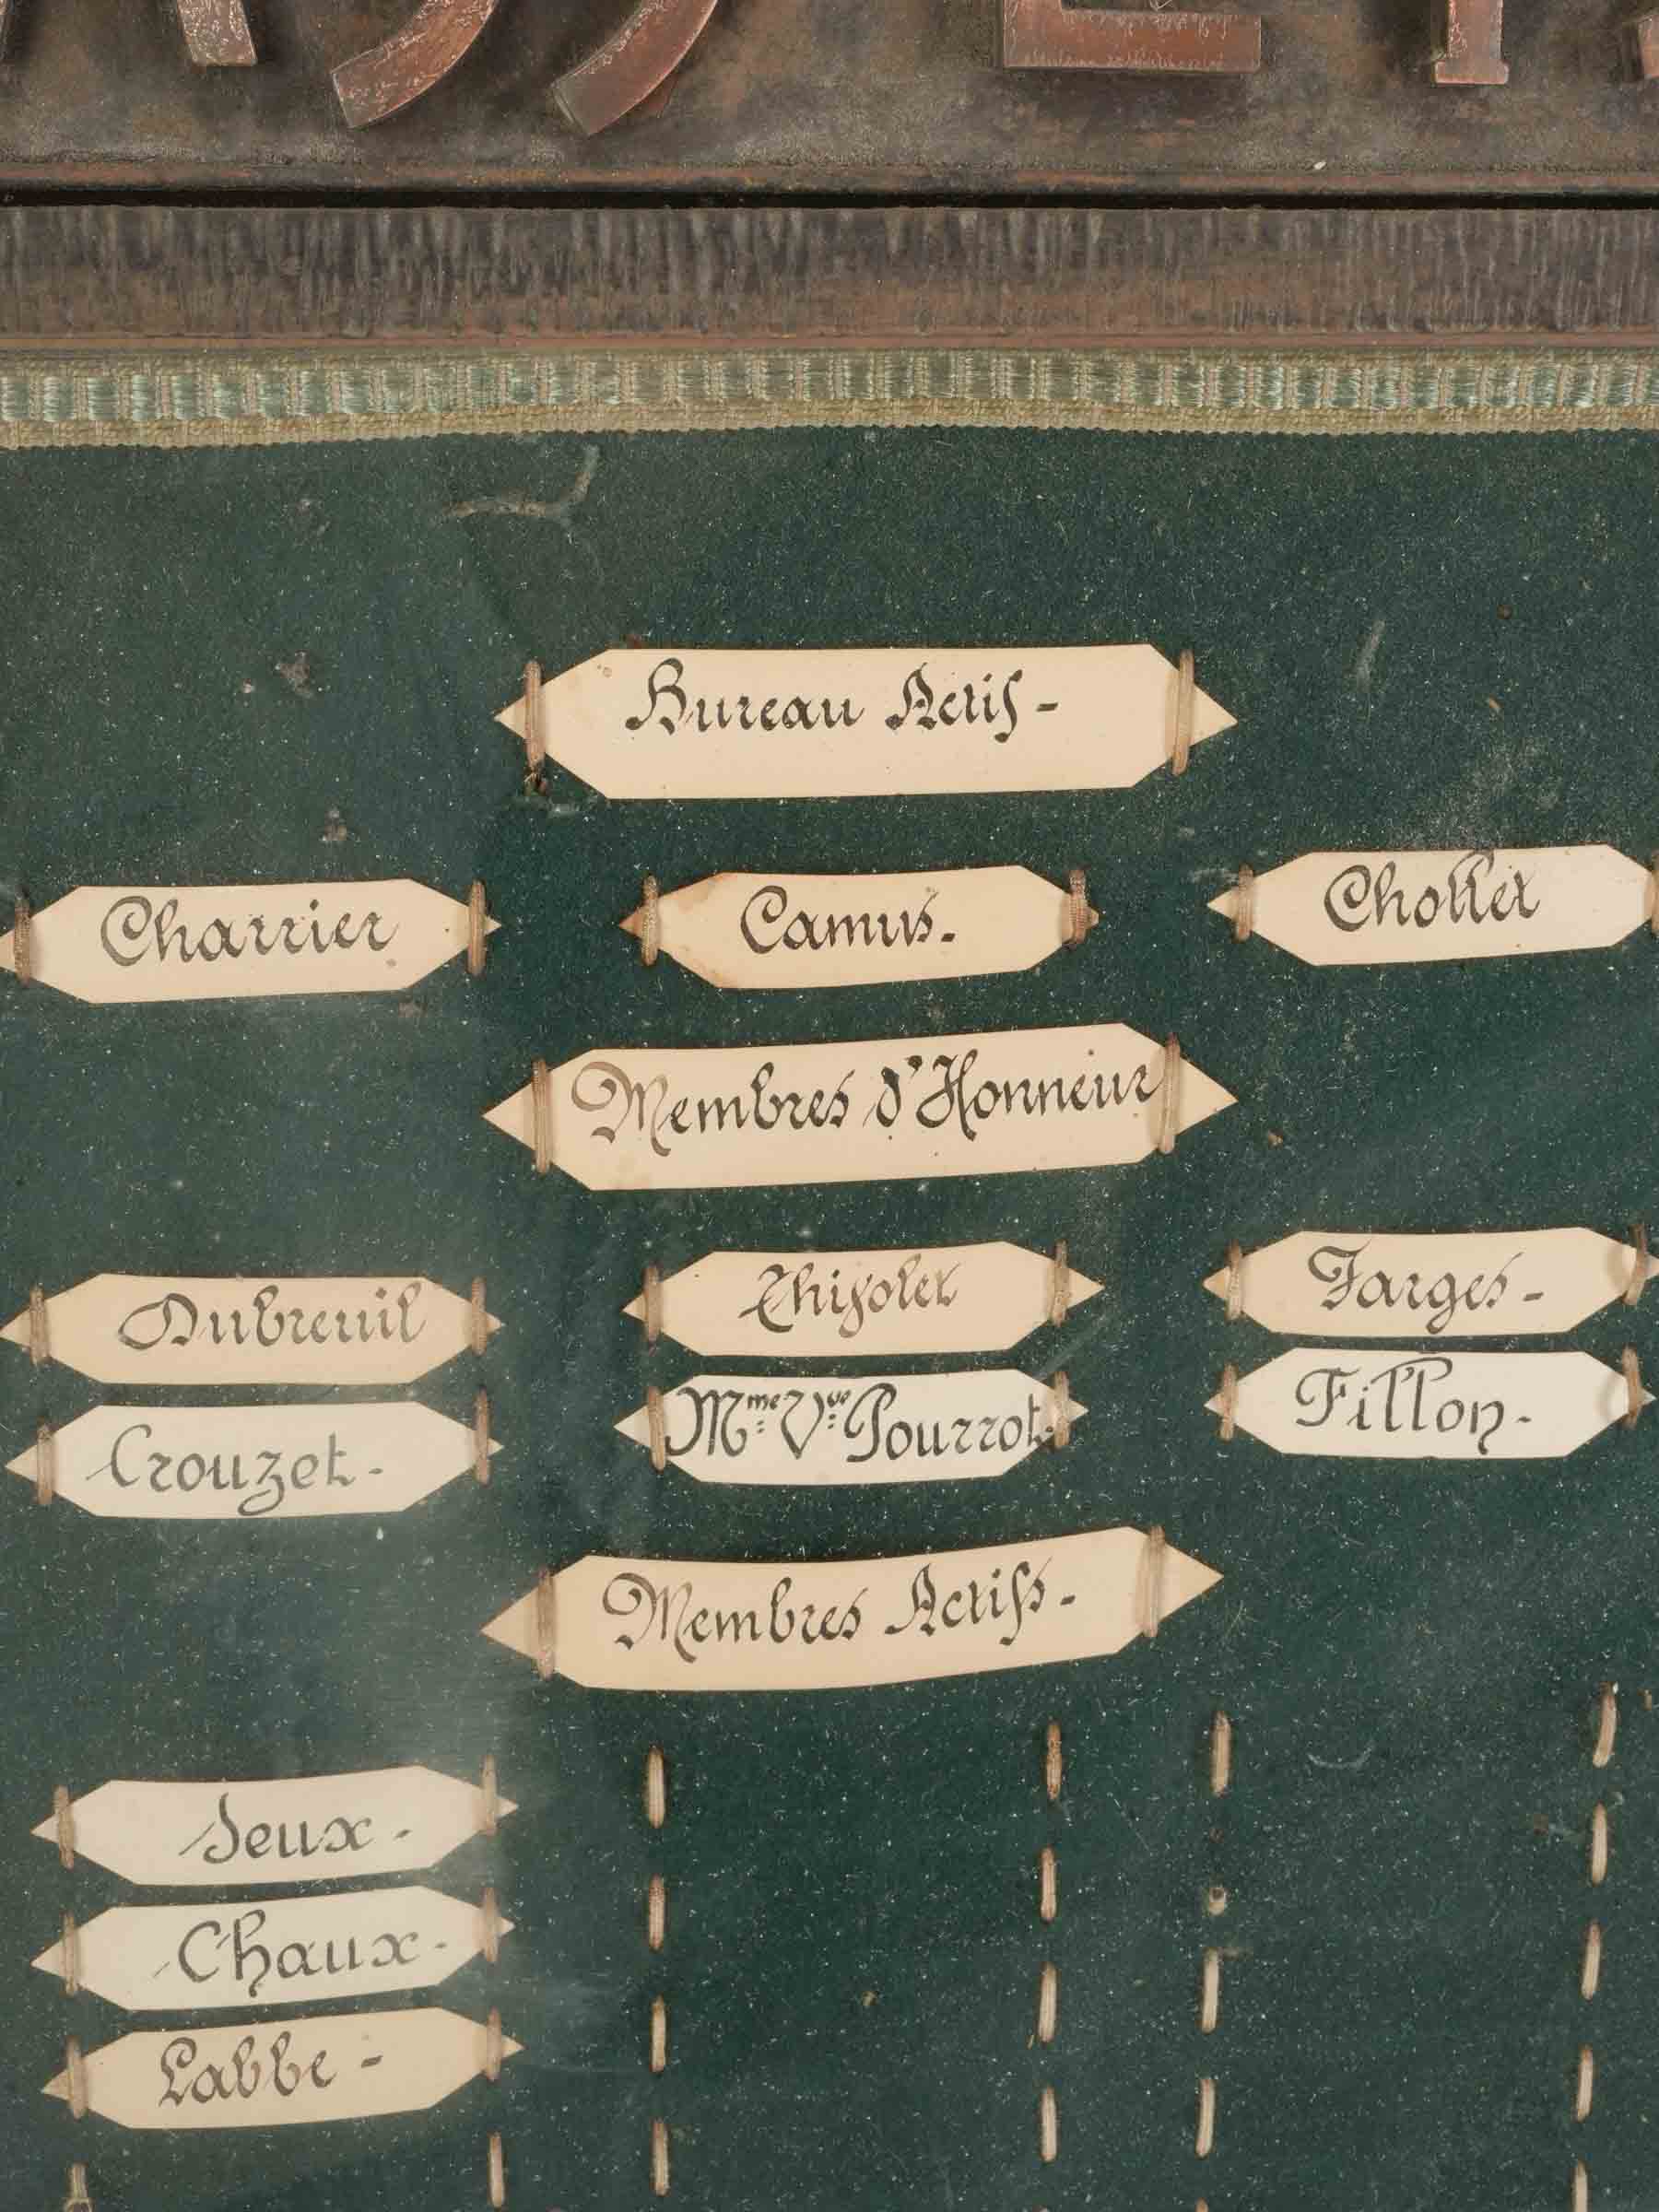 Bureau Actif -
Charrier
Camus.
Chollet
Membres d'Honneur
Dubreuil
Thisolet
Farges -
Crouzet -
Mme Vve Pourrot.
Fillon -
Membres Actifs -
Jeux -
Chaux -
Labbe -